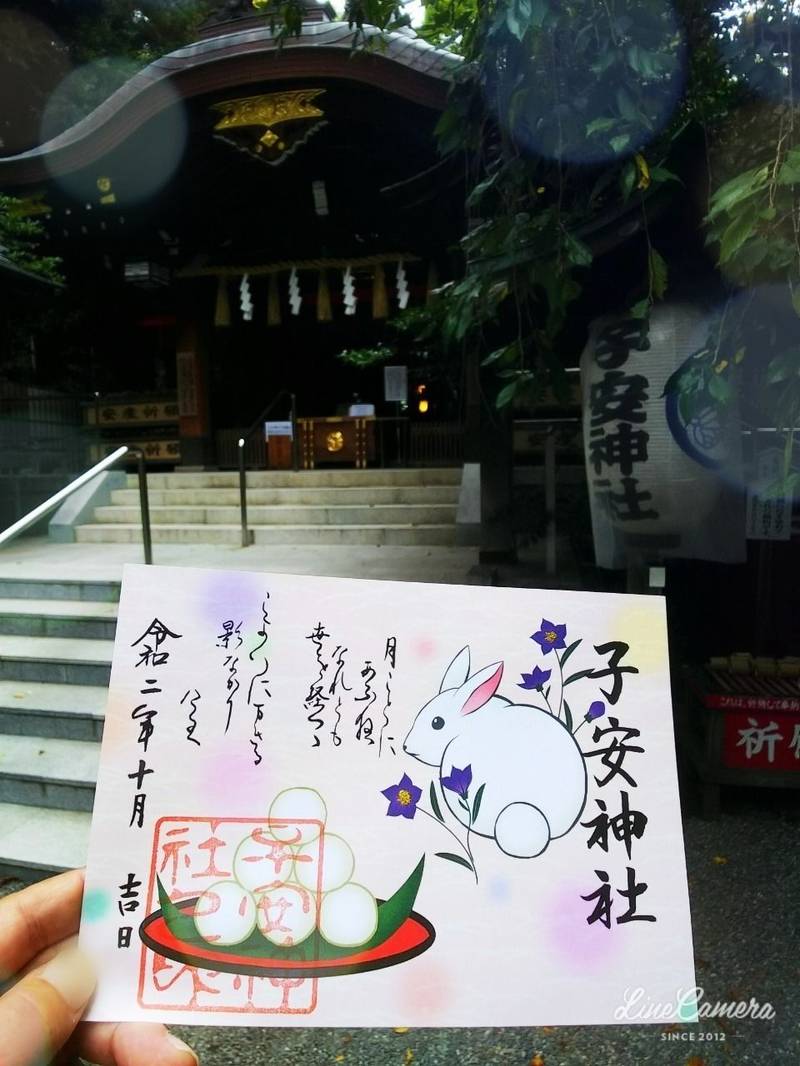 安産祈願
安産祈願
子安神社
祈願
子安神社
月ことに
あふ夜
なれとも
世を経つゝ
こよひにまさる
影なかりけり
令和二年十月
吉日
子安神社
LineCamera
SINCE 2012